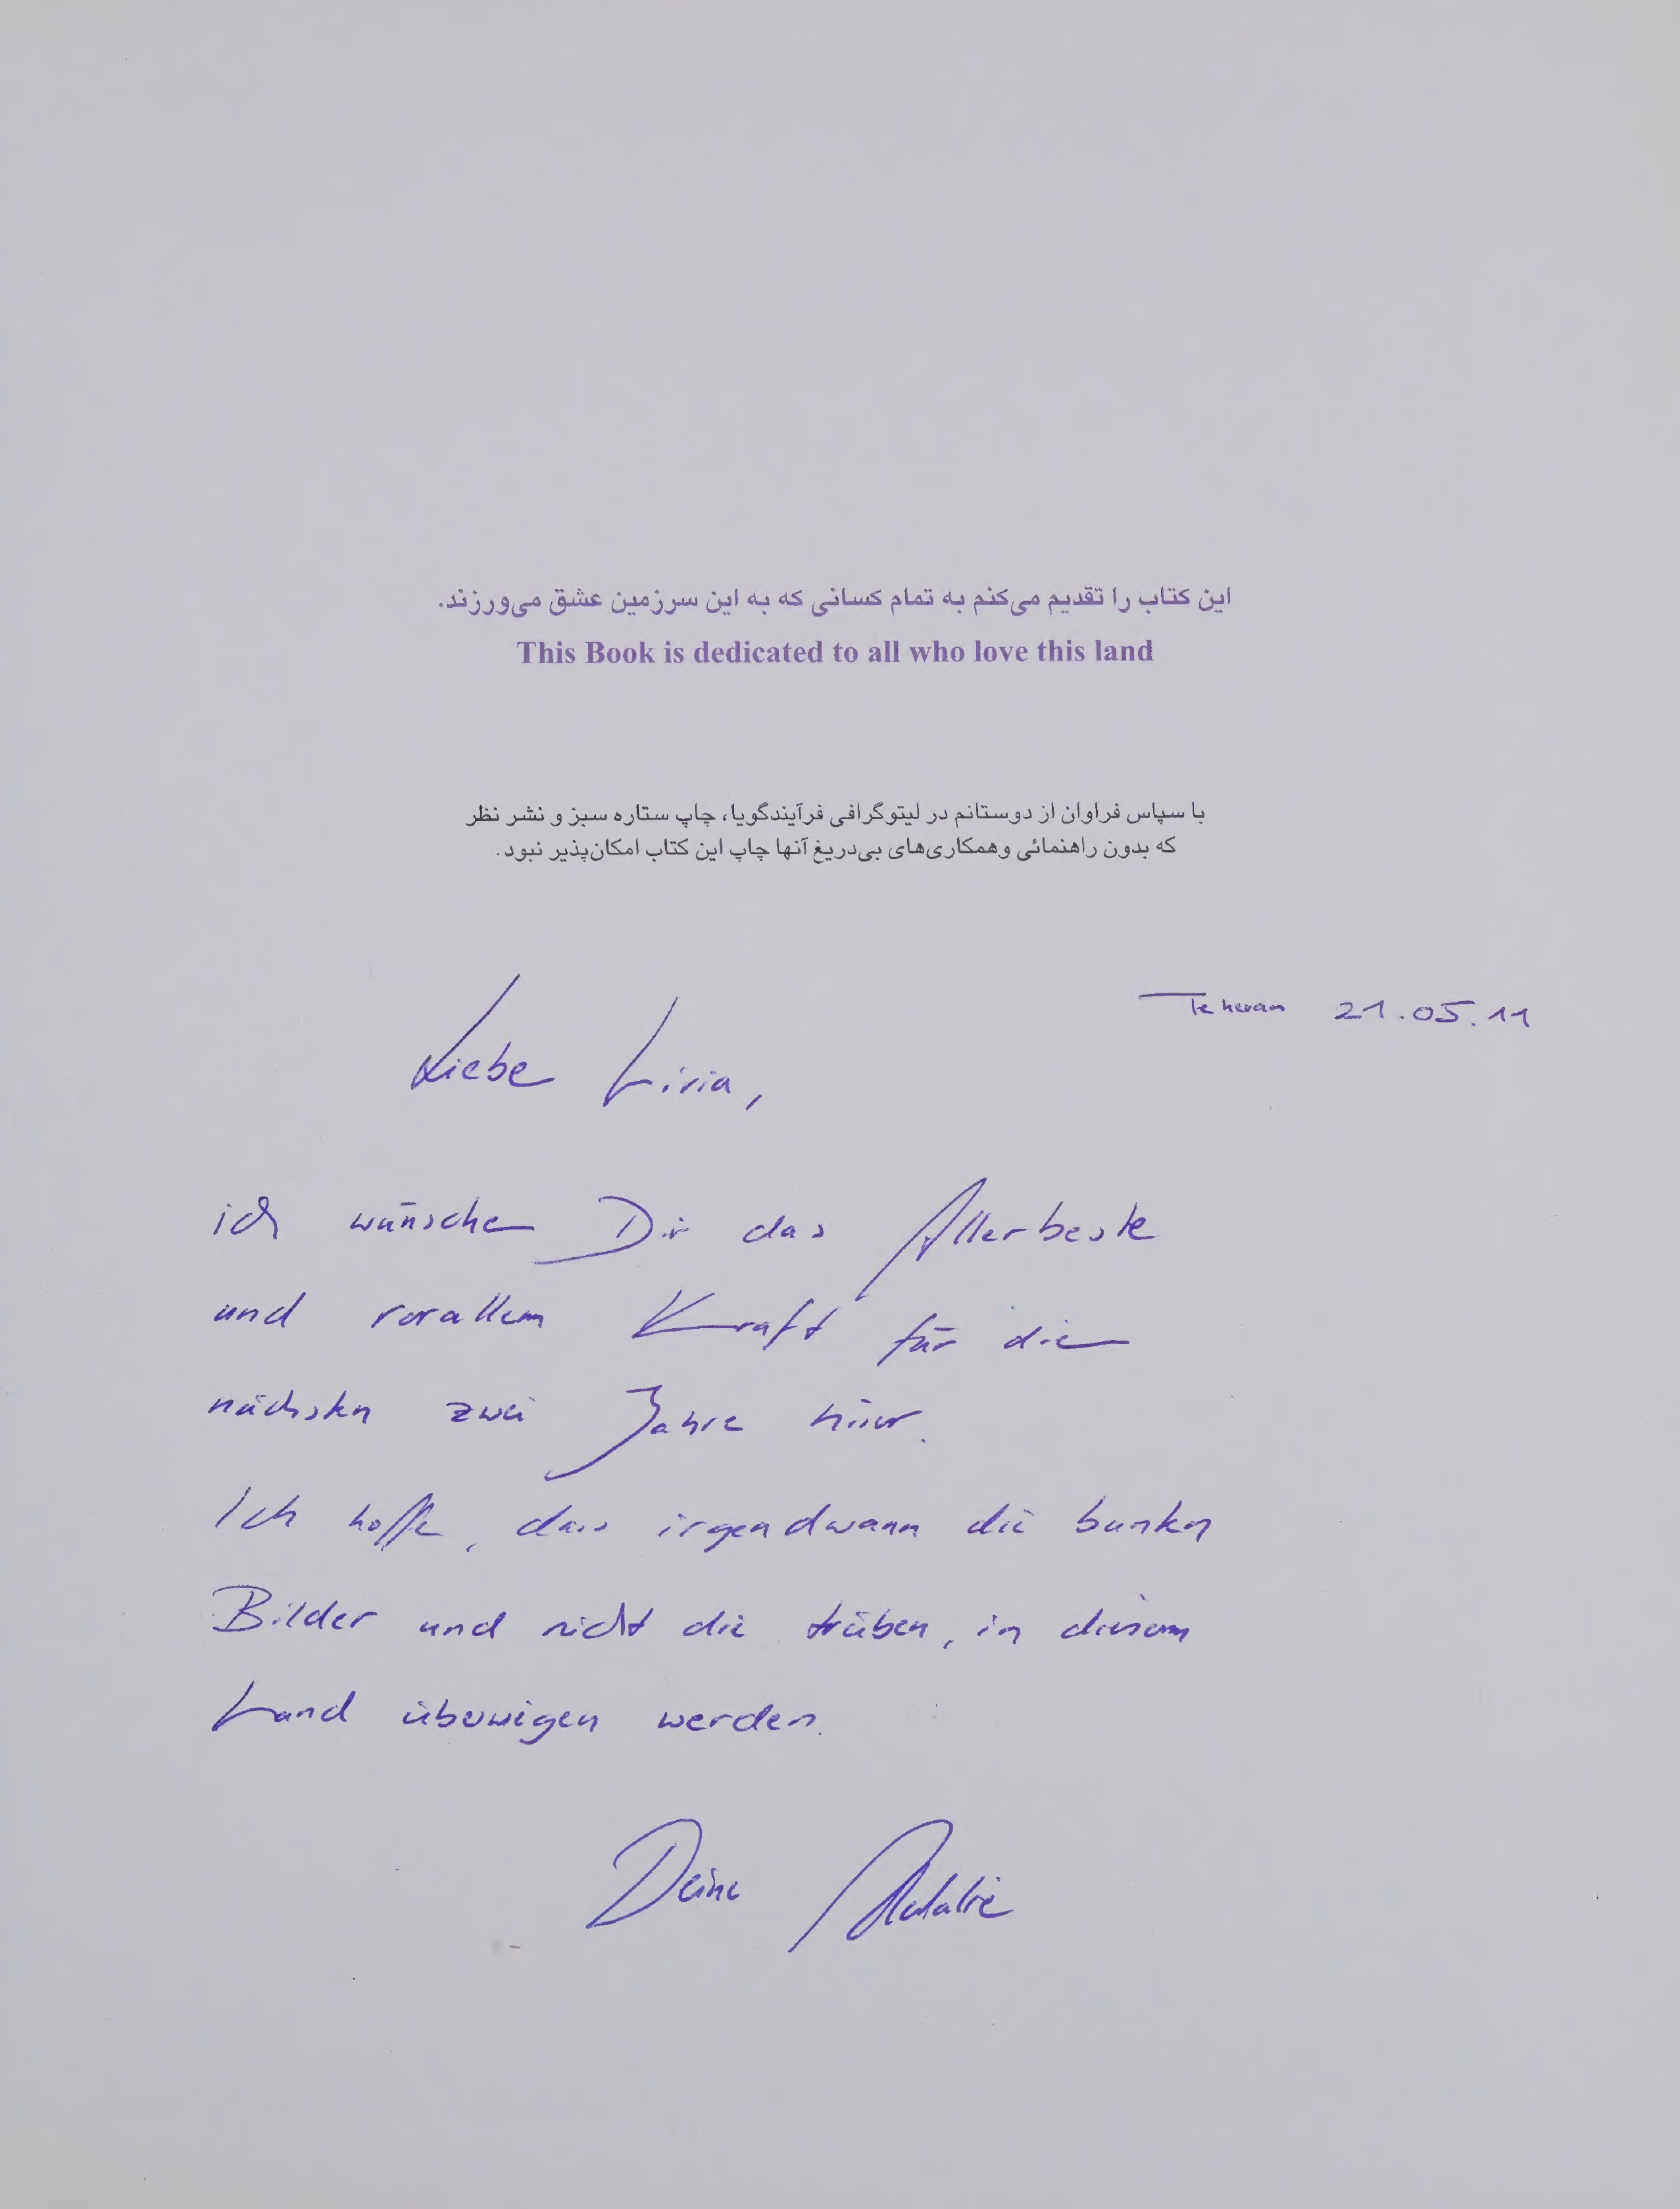 این کتاب را تقدیم می‌کنم به تمام کسانی که به این سرزمین عشق می‌ورزند.
This Book is dedicated to all who love this land
با سپاس فراوان از دوستانم در لیتوگرافی فرآیندگویا، چاپ ستاره سبز و نشر نظر
که بدون راهنمائی وهمکاری‌های بی‌دریغ آنها چاپ این کتاب امکان‌پذیر نبود.
Teheran 21.05.11
Liebe Livia,
ich wünsche Dir das Allerbeste
und vorallem Kraft für die
nächsten zwei Jahre hier.
Ich hoffe, dass irgendwann die bunten
Bilder und nicht die trüben, in diesem
Land überwigen werden.
Deine Natalie